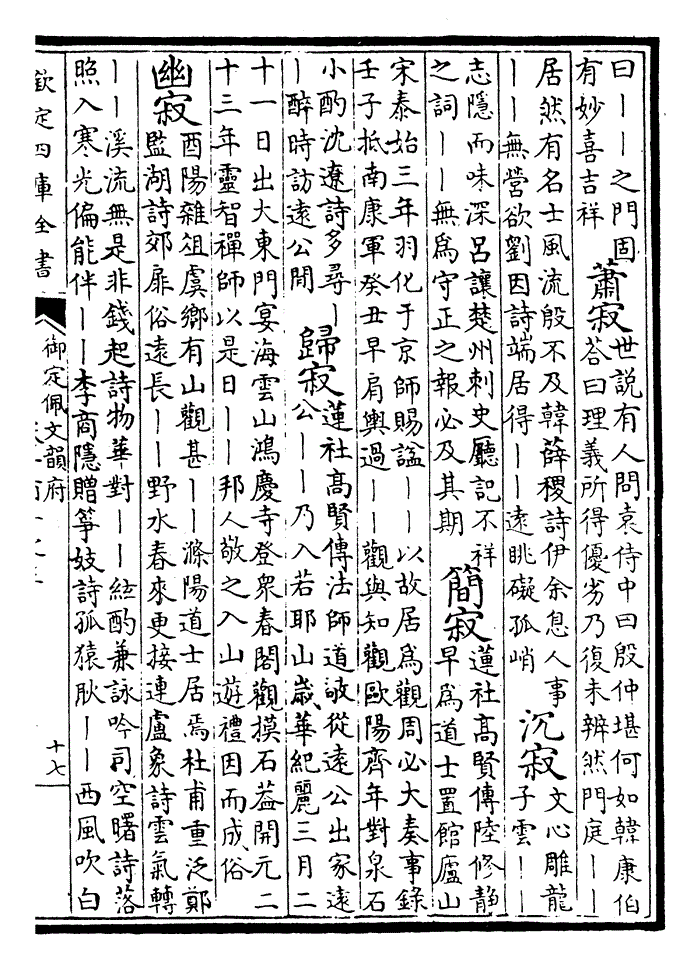 曰丨丨之門固
有妙喜吉祥
蕭寂
世說有人問袁侍中曰殷仲堪何如韓康伯
荅曰理義所得優劣乃復未辨然門庭丨丨
居然有名士風流殷不及韓薛稷詩伊余息人事
丨丨無營欲劉因詩端居得丨丨遠眺礙孤峭
沉寂
文心雕龍
子雲丨丨
志隱而味深呂讓楚州刺史廳記不祥
之詞丨丨無為守正之報必及其期
簡寂
蓮社高賢傳陸修靜
早為道士置館廬山
宋泰始三年羽化于京師賜諡丨丨以故居為觀周必大奏事錄
壬子抵南康軍癸丑早肩輿過丨丨觀與知觀歐陽齊年對泉石
小酌沈遼詩多尋丨
丨醉時訪遠公間
歸寂
蓮社高賢傳法師道敬從遠公出家遠
公丨丨乃入若耶山歲華紀麗三月二
十一日出大東門宴海雲山鴻慶寺登衆春閣觀摸石葢開元二
十三年靈智禪師以是日丨丨邦人敬之入山遊禮因而成俗
幽寂
酉陽雜俎虞鄉有山觀甚丨丨滌陽道士居焉杜甫重泛鄭
監湖詩郊扉俗遠長丨丨野水春來更接連盧象詩雲氣轉
丨丨溪流無是非錢起詩物華對丨丨絃酌兼詠吟司空曙詩落
照入寒光偏能伴丨丨李商隱贈箏妓詩孤猿耿丨丨西風吹白
欽定四庫全書
御定佩文韻府
十七